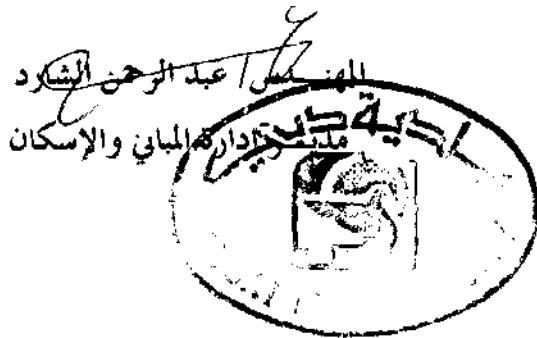 المهندس / عبد الرحمن الشارد
مدير إدارة المباني والإسكان
دبي